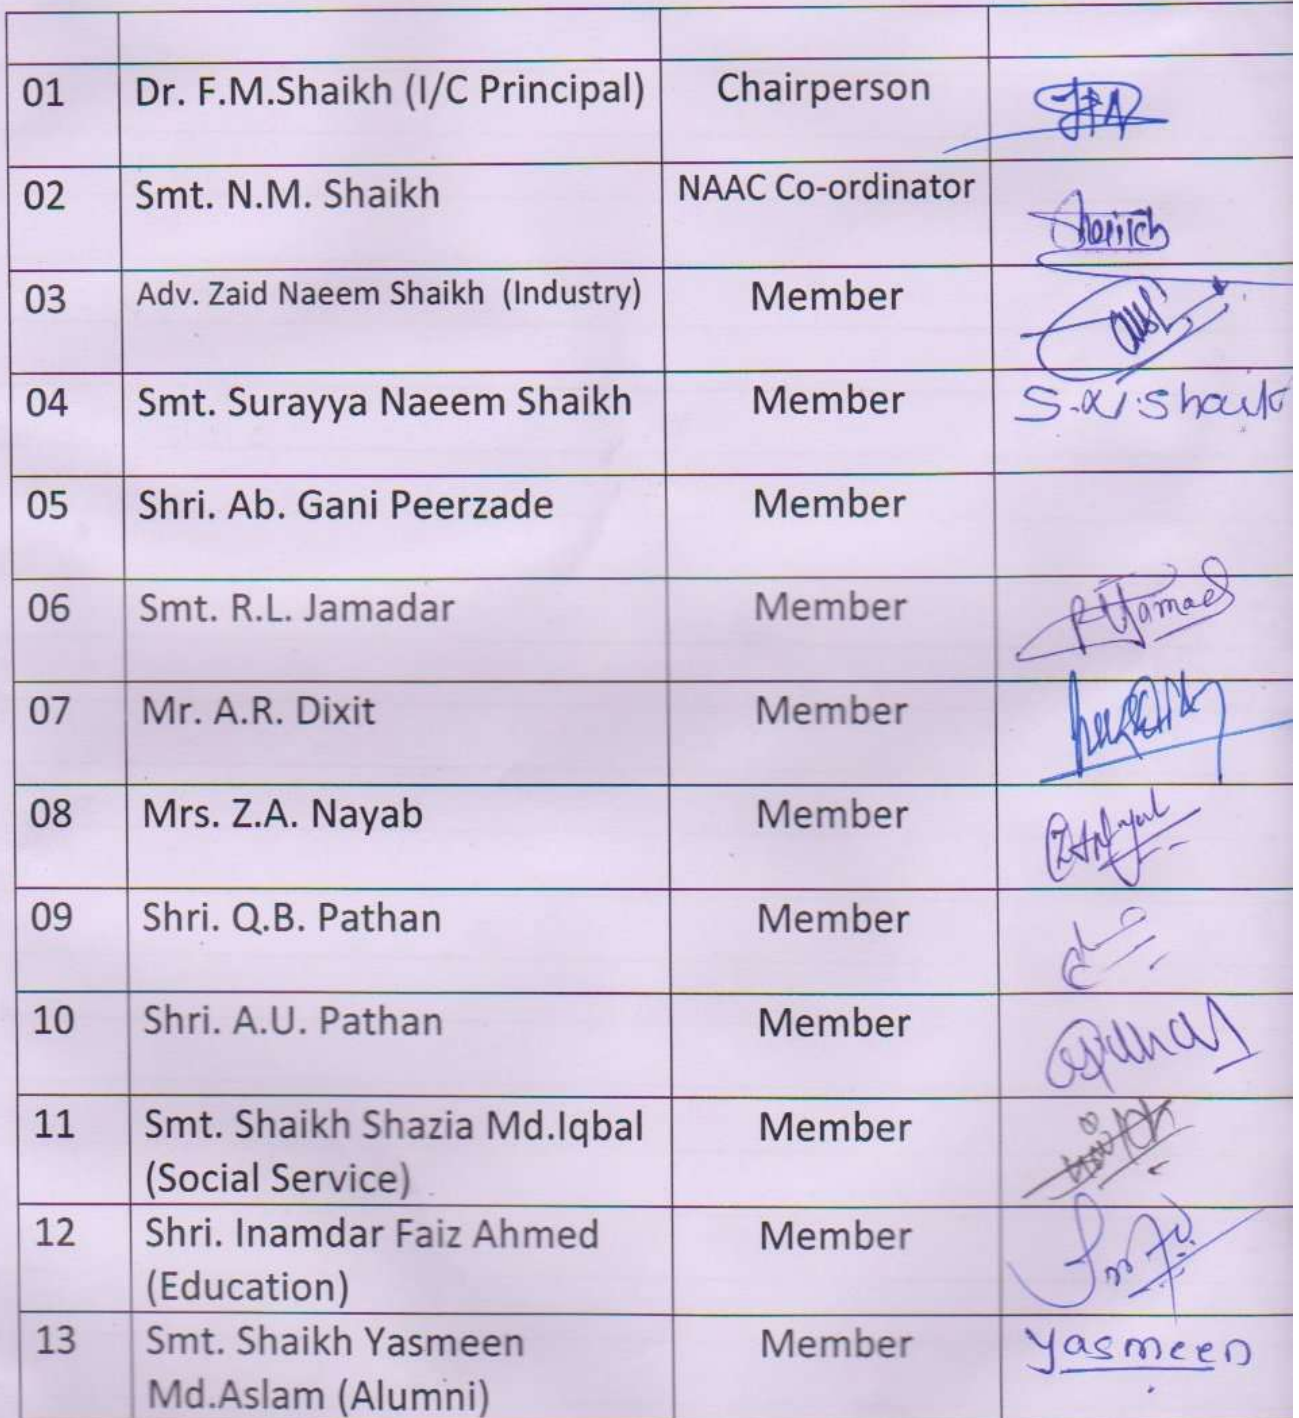 01 Dr. F.M.Shaikh (I/C Principal) Chairperson
02 Smt. N.M. Shaikh NAAC Co-ordinator
03 Adv. Zaid Naeem Shaikh (Industry) Member
04 Smt. Surayya Naeem Shaikh Member S.N.Shaikh
05 Shri. Ab. Gani Peerzade Member
06 Smt. R.L. Jamadar Member
07 Mr. A.R. Dixit Member
08 Mrs. Z.A. Nayab Member ZANayab
09 Shri. Q.B. Pathan Member
10 Shri. A.U. Pathan Member
11 Smt. Shaikh Shazia Md.Iqbal Member
(Social Service)
12 Shri. Inamdar Faiz Ahmed Member
(Education)
13 Smt. Shaikh Yasmeen Member Yasmeen
Md.Aslam (Alumni)